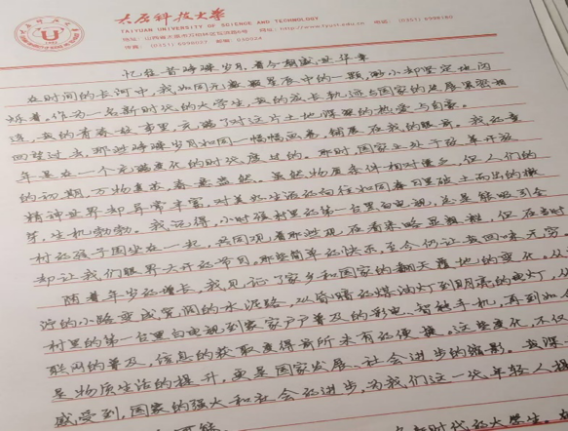 太原科技大学
TAIYUAN UNIVERSITY OF SCIENCE AND TECHNOLOGY
忆往昔峥嵘岁月,看今朝盛世华章
在时间的长河中,我如同无数星辰中的一颗,渺小却坚定地闪
烁着。作为一名新时代的大学生,我的成长轨迹与国家的发展紧密相
连,我的青春故事里,充满了对这片土地深深的热爱与自豪。
回望过去,那些峥嵘岁月如同一幅幅画卷,铺展在我的眼前。我的童
年是在一个充满变化的时代度过的。那时,国家正处于改革开放
的初期,万物复苏,春意盎然。虽然物质条件相对匮乏,但人们的
精神世界却异常丰富,对美好生活的向往如同春日里破土而出的嫩
芽,生机勃勃。我记得,小时候村里的第一台黑白电视,总是能吸引全
村的孩子围坐在一起,共同观看那些现在看来略显粗糙,但在当时
却让我们眼界大开的节目,那些简单的快乐,至今仍让我回味无穷。
随着年岁的增长,我见证了家乡和国家的翻天覆地的变化。从
泞的小路变成宽阔的水泥路,从昏暗的煤油灯到明亮的电灯,从
村里的第一台黑白电视到家家户户普及的彩电、智能手机,再到如今
联网的普及,信息的获取变得前所未有的便捷。这些变化,不仅
是物质生活的提升,更是国家发展、社会进步的缩影。我深
感受到,国家的强大和社会的进步,为我们这一代年轻人提
时代的大学生,